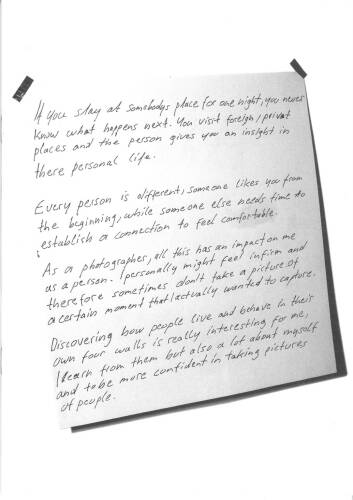 If you stay at somebodys place for one night, you never
know what happens next. You visit foreign/privat
places and the person gives you an insight in
there personal life.
Every person is different, someone likes you from
the beginning, while someone else needs time to
establish a connection to feel comfortable.
As a photographer, all this has an impact on me
as a person. I personally might feel infirm and
therefore sometimes don't take a picture of
a certain moment that I actually wanted to capture.
Discovering how people live and behave in their
own four walls is really interesting for me,
I learn from them but also a lot about myself
and to be more confident in taking pictures
of people.